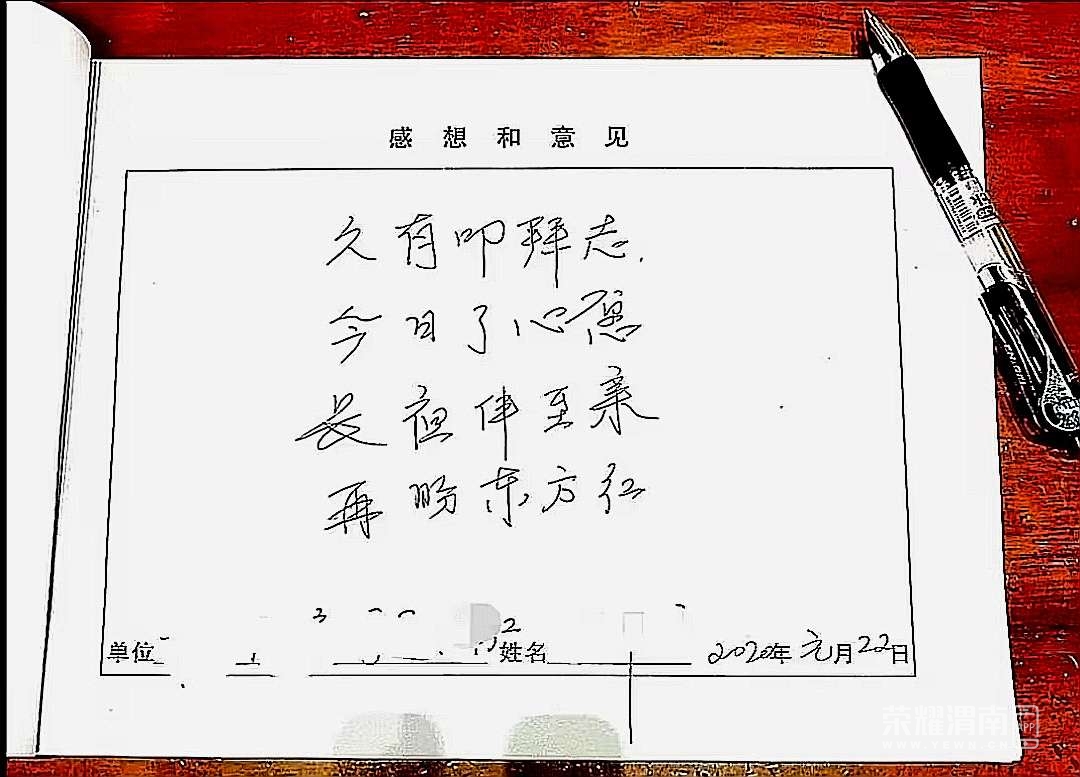 感想和意见
久有叩拜志.
今日了心愿
长夜伴至亲
再盼东方红
单位 姓名 2020年元月22日
荣耀渭南网
APP